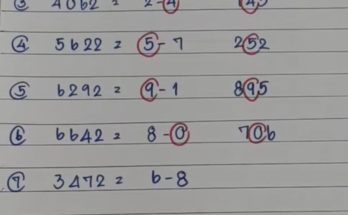 ③ 4062 = 2-4
④ 5622 = 5-7 252
⑤ 6292 = 9-1 895
⑥ 6642 = 8-0 706
⑦ 3472 = 6-8